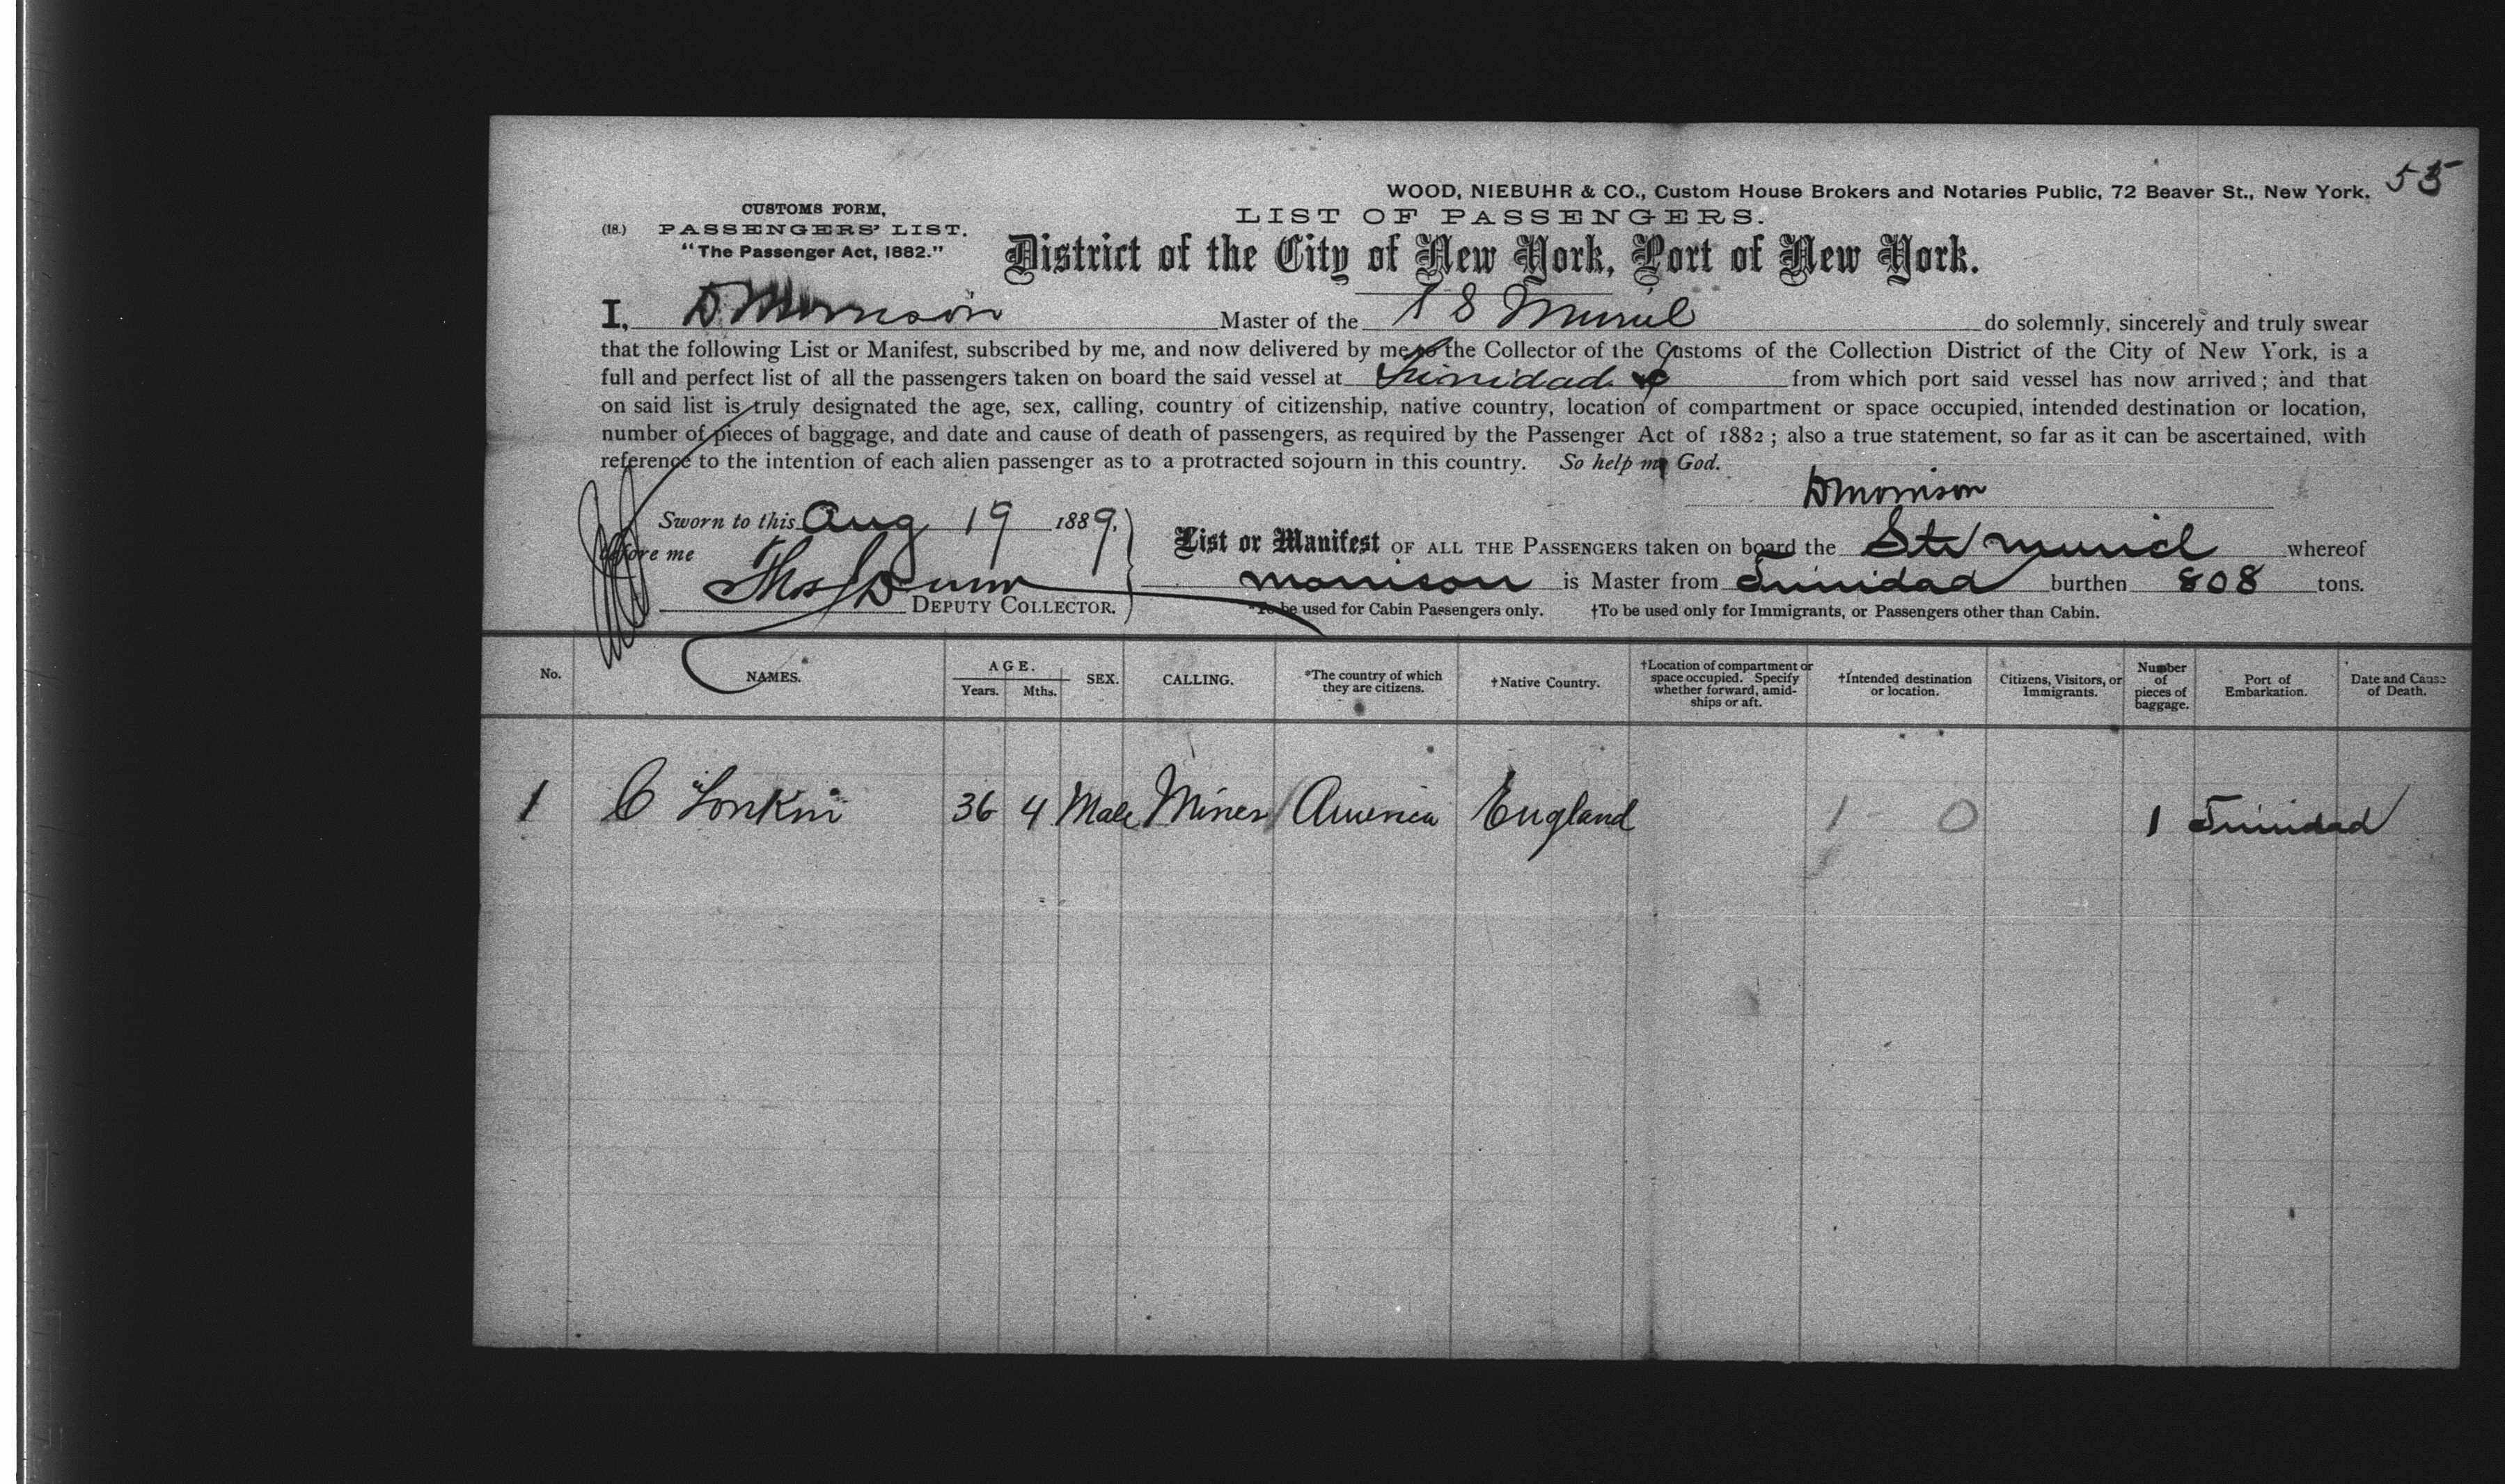 WOOD, NIEBUHR & CO., Custom House Brokers and Notaries Public, 72 Beaver St., New York.
CUSTOMS FORM,
(18.) PASSENGERS' LIST.
"The Passenger Act, 1882."
LIST OF PASSENGERS.
District of the City of New York, Port of New York.
I, D Morrison Master of the S S Muriel do solemnly, sincerely and truly swear
that the following List or Manifest, subscribed by me, and now delivered by me to the Collector of the Customs of the Collection District of the City of New York, is a
full and perfect list of all the passengers taken on board the said vessel at Trinidad from which port said vessel has now arrived; and that
on said list is truly designated the age, sex, calling, country of citizenship, native country, location of compartment or space occupied, intended destination or location,
number of pieces of baggage, and date and cause of death of passengers, as required by the Passenger Act of 1882; also a true statement, so far as it can be ascertained, with
reference to the intention of each alien passenger as to a protracted sojourn in this country. So help me God.
D Morrison
Sworn to this Aug 19 1889,
before me
Thos Dunn DEPUTY COLLECTOR.
List or Manifest OF ALL THE PASSENGERS taken on board the Str Muriel whereof
Morrison is Master from Trinidad burthen 808 tons.
*To be used for Cabin Passengers only. †To be used only for Immigrants, or Passengers other than Cabin.
No. NAMES. AGE. Years. Mths. SEX. CALLING. *The country of which they are citizens. †Native Country. †Location of compartment or space occupied. Specify whether forward, amidships or aft. †Intended destination or location. Citizens, Visitors, or Immigrants. Number of pieces of baggage. Port of Embarkation. Date and Cause of Death.
1 C Lonkin 36 4 Male Miner America England 1 0 1 Trinidad